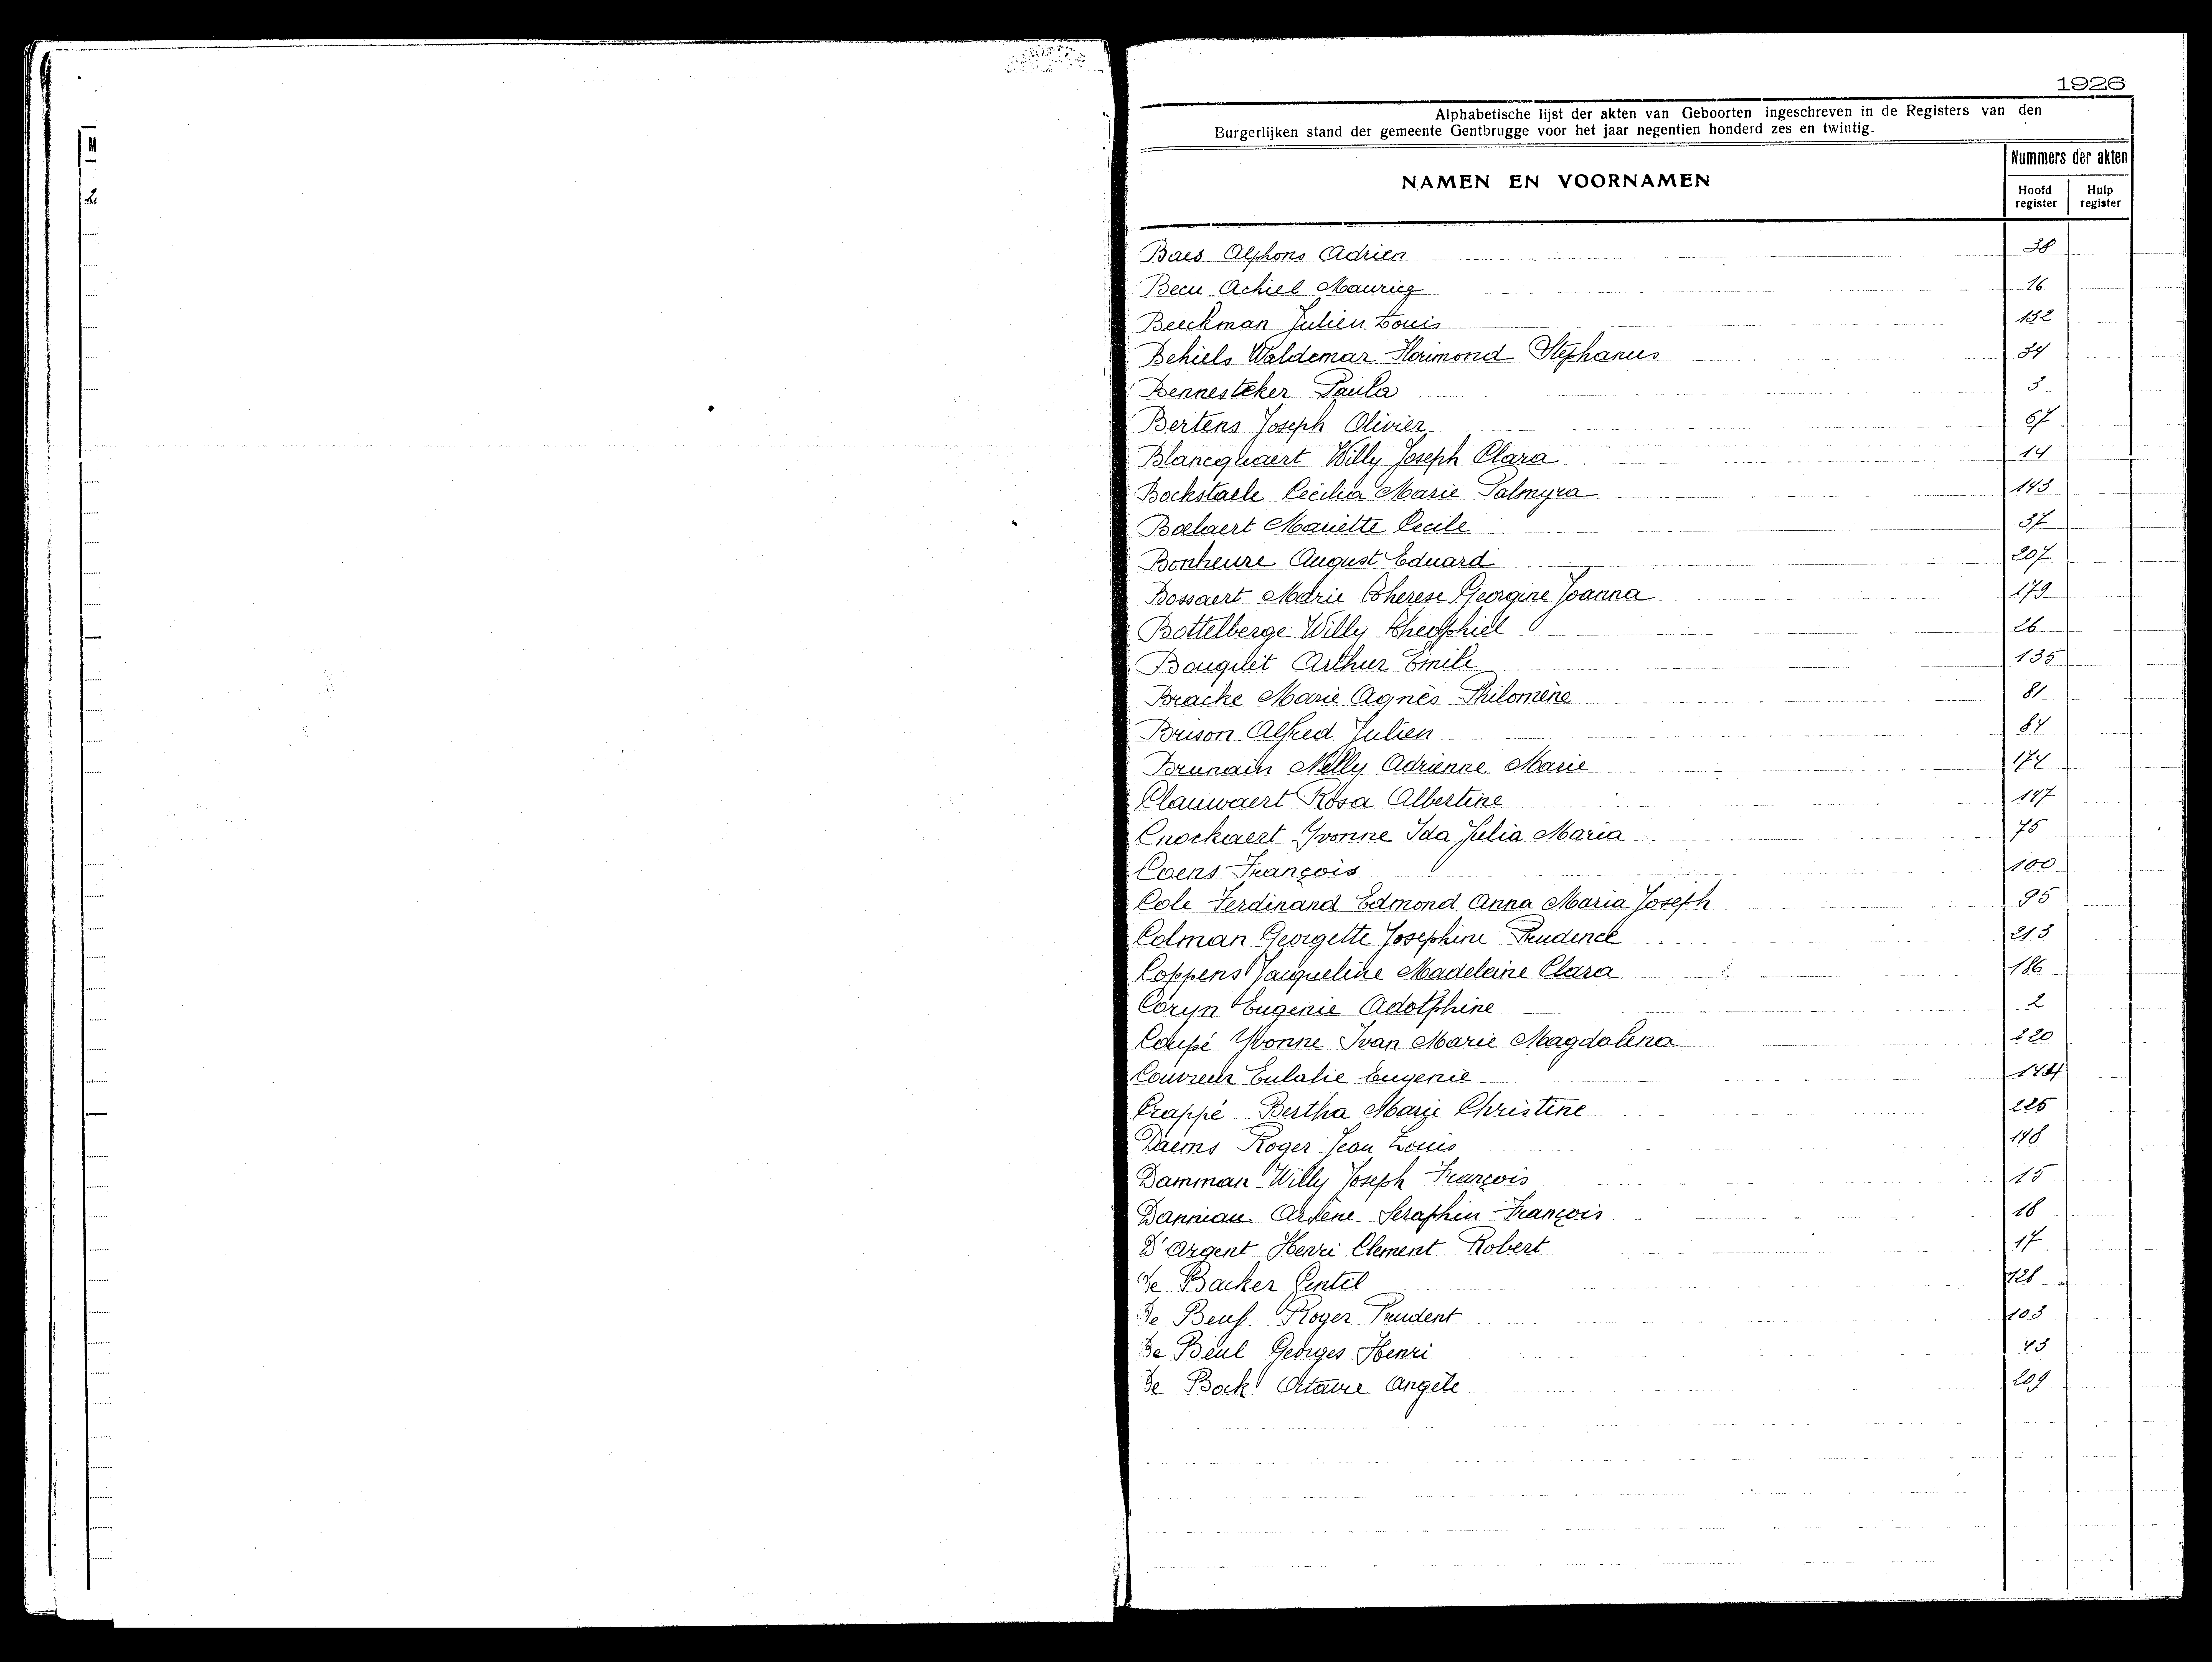 1926
Alphabetische lijst der akten van Geboorten ingeschreven in de Registers van den
Burgerlijken stand der gemeente Gentbrugge voor het jaar negentien honderd zes en twintig.
NAMEN EN VOORNAMEN
Nummers der akten
Hoofd register
Hulp register
Baes Alphons Adrien 38
Becu Achiel Maurice 16
Beeckman Julien Louis 132
Behiels Waldemar Florimond Stephanus 34
Bennesteker Paula 3
Bertens Joseph Olivier 67
Blancquaert Willy Joseph Clara 14
Bockstaele Cecilia Marie Palmyra 143
Boelaert Mariette Cecile 37
Bonheure August Eduard 207
Bossaert Marie Therese Georgine Joanna 179
Bottelberge Willy Theophiel 26
Bouquet Arthur Emile 135
Bracke Marie Agnès Philomène 81
Brison Alfred Julien 84
Brunain Nelly Adrienne Marie 174
Clauwaert Rosa Albertine 147
Cnockaert Yvonne Ida Julia Maria 75
Coens François 100
Cole Ferdinand Edmond Anna Maria Joseph 95
Colman Georgette Josephine Prudence 213
Coppens Jacqueline Madeleine Clara 186
Coryn Eugenie Adolphine 2
Coupé Yvonne Ivan Marie Magdalena 220
Couvreur Eulalie Eugenie 144
Crappé Bertha Marie Christine 225
Daems Roger Jean Louis 148
Damman Willy Joseph François 15
Danniau Arsène Seraphin François 18
D'Argent Henri Clement Robert 17
De Backer Gentil 128
De Beuf Roger Prudent 103
De Beul Georges Henri 43
De Bock Octavie Angèle 209